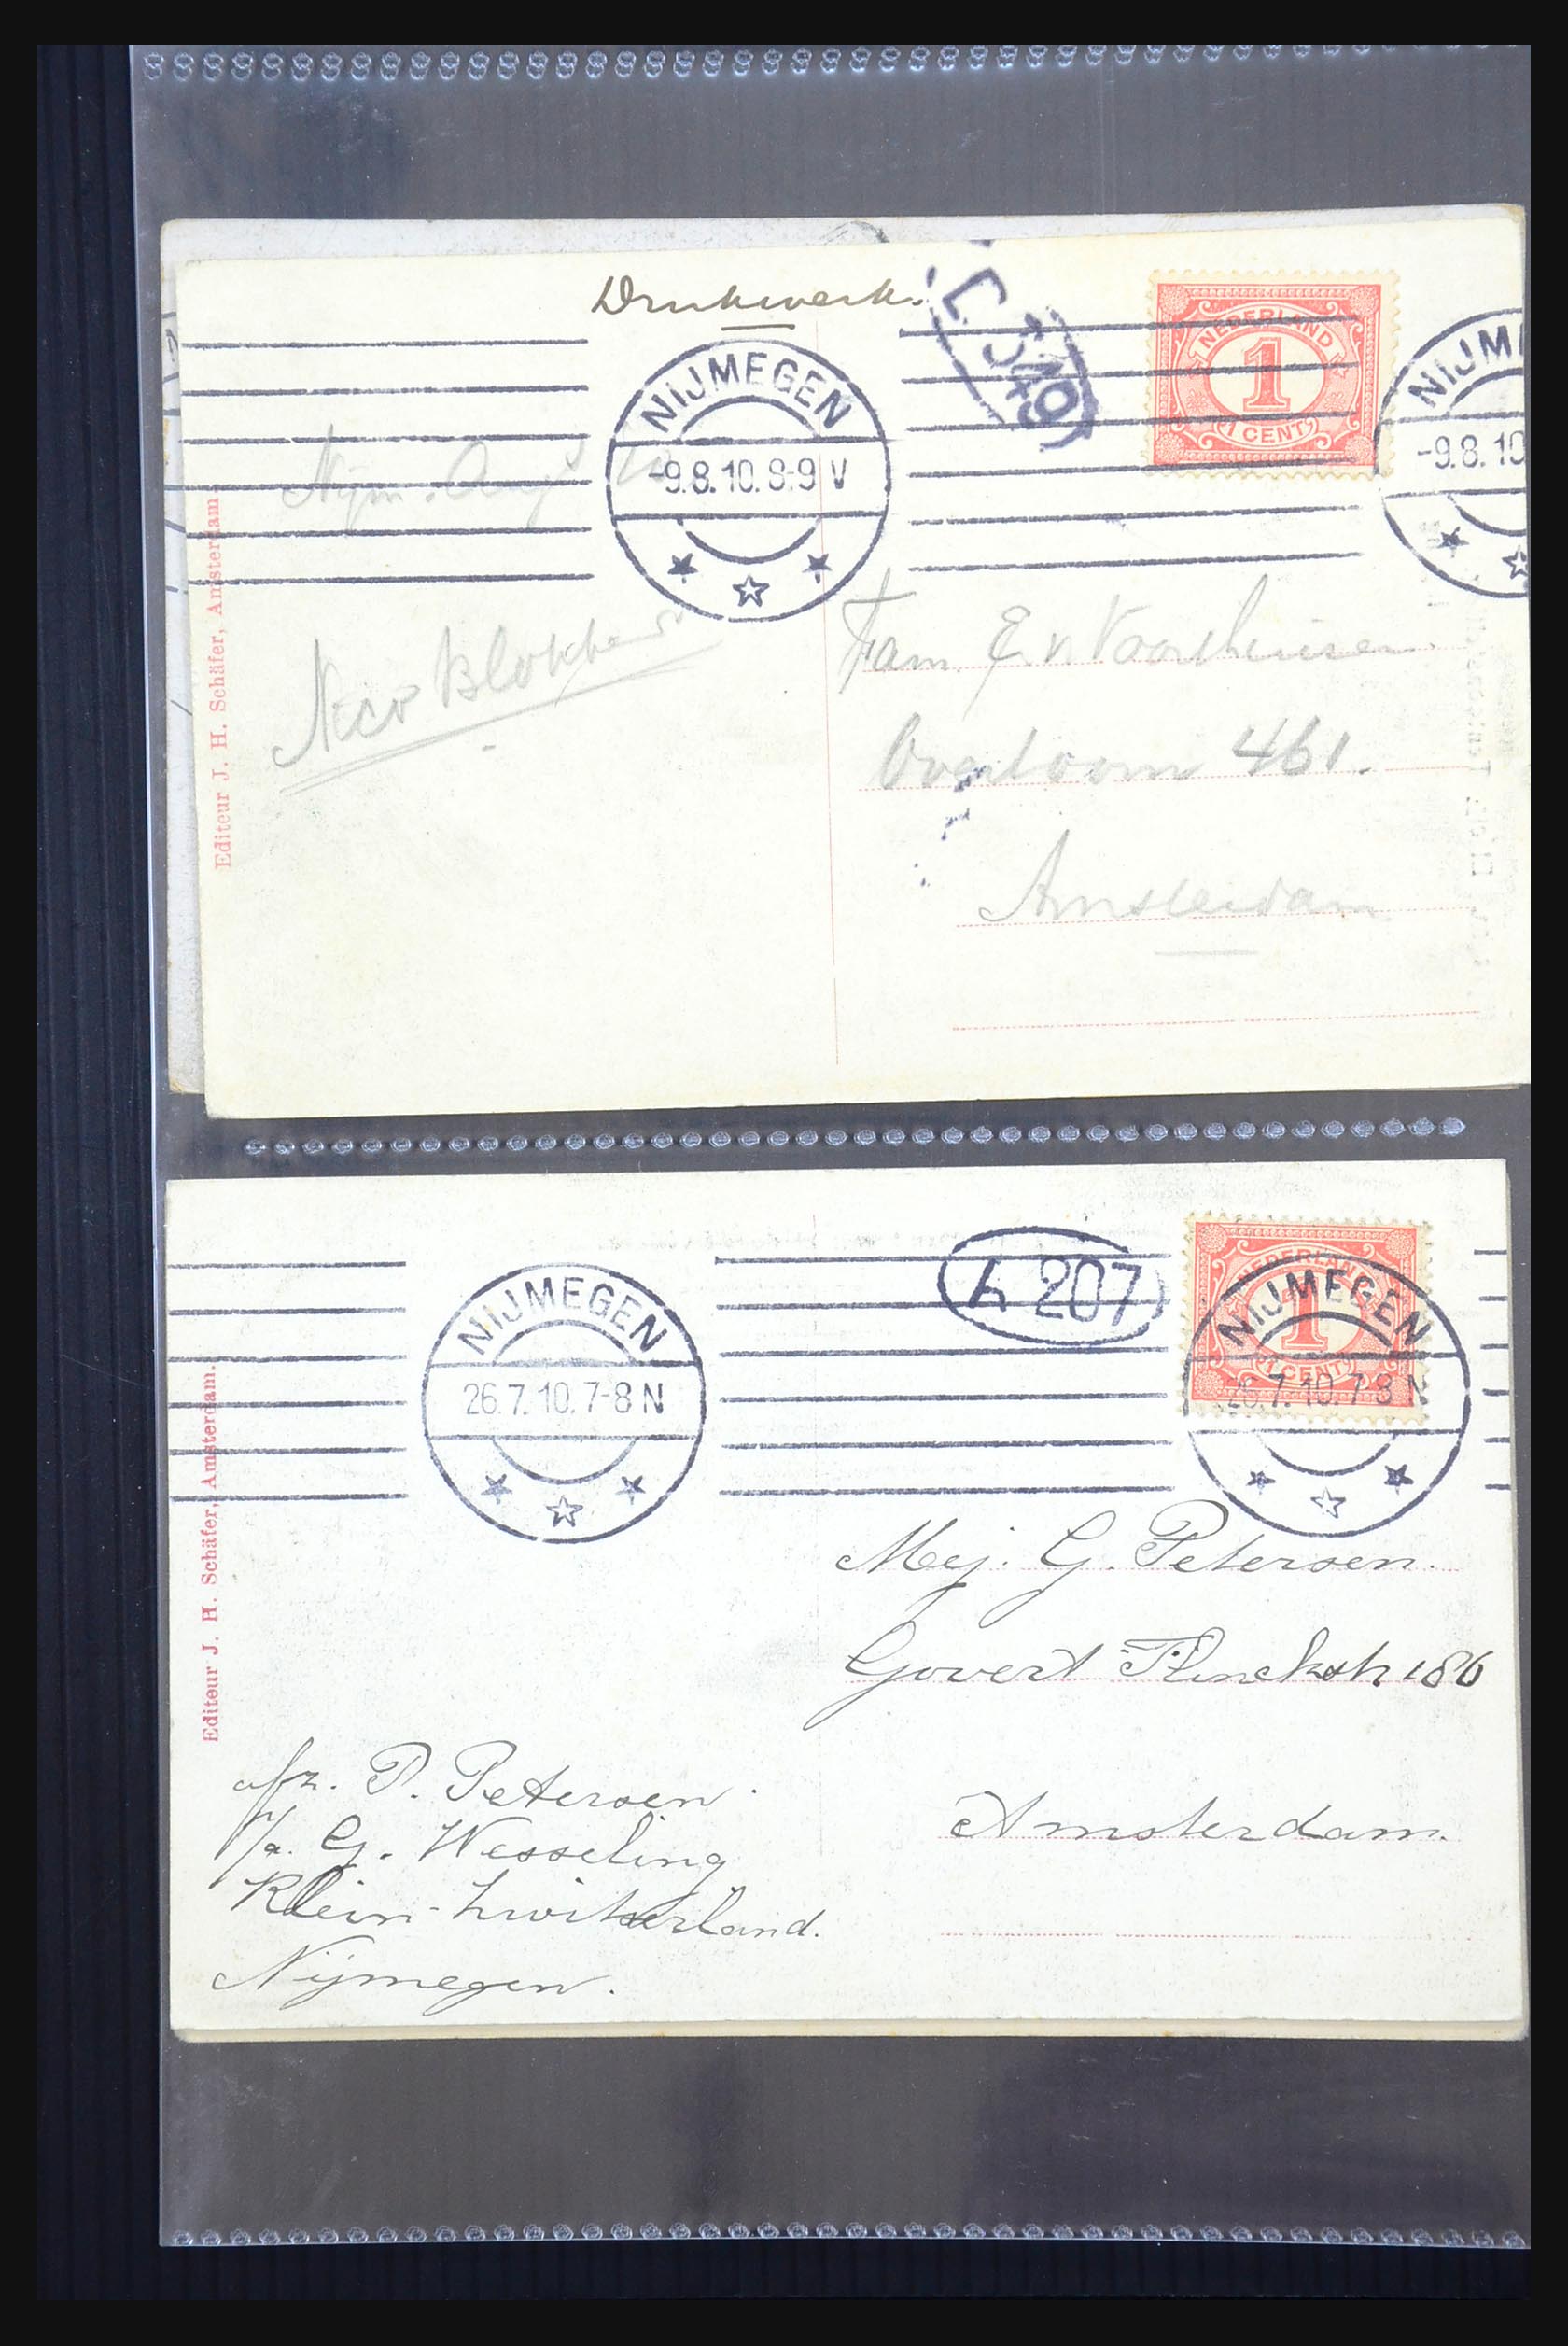 Drukwerk.
L 549
NEDERLAND
1
1 CENT
NIJMEGEN
-9.8.10.8-9 V
NIJM
-9.8.10
Nijm. Aug
Nico
Fam. E. v. Voorthuisen
Overtoom 461.
Amsterdam
Editeur J. H. Schäfer, Amsterdam.
h 207
NEDERLAND
1
1 CENT
NIJMEGEN
26.7.10.7-8 N
NIJMEGEN
26.7.10.7-8 N
Mej. G. Petersen.
Govert Flinckstr 186
Amsterdam.
Editeur J. H. Schäfer, Amsterdam.
afz. P. Petersen.
p/a. G. Wesseling
Klein-Zwitserland.
Nijmegen.